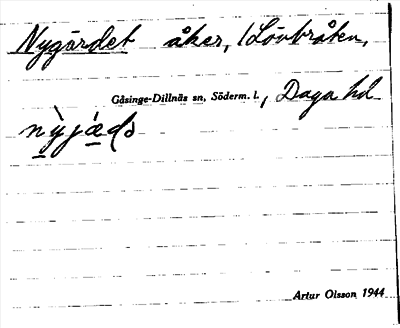 Nygärdet åker, (Lövbråten,
Gåsinge-Dillnäs sn, Söderm. l., Daga hd
Artur Olsson 1944